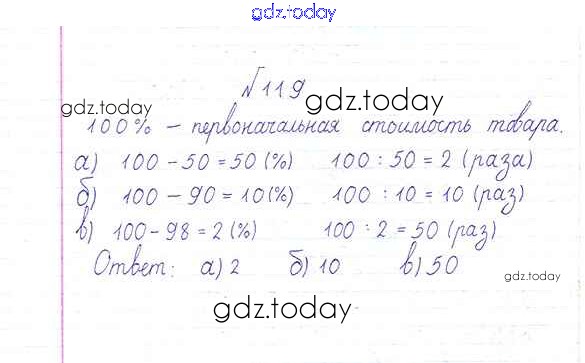 gdz.today
№119
gdz.today gdz.today
100% – первоначальная стоимость товара.
а) 100 – 50 = 50 (%) 100 : 50 = 2 (раза)
б) 100 – 90 = 10 (%) 100 : 10 = 10 (раз)
в) 100 – 98 = 2 (%) 100 : 2 = 50 (раз)
Ответ: а) 2 б) 10 в) 50
gdz.today
gdz.today